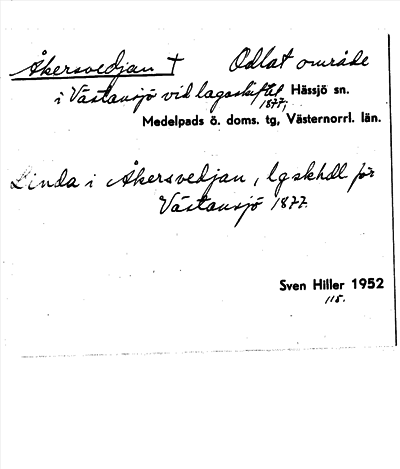 Åkersvedjan † Odlat område
i Västansjö vid lagaskiftet 1877, Hässjö sn.
Medelpads ö. doms. tg, Västernorrl. län.
Linda i Åkersvedjan, lgskhdl för
Västansjö 1877.
Sven Hiller 1952
115.